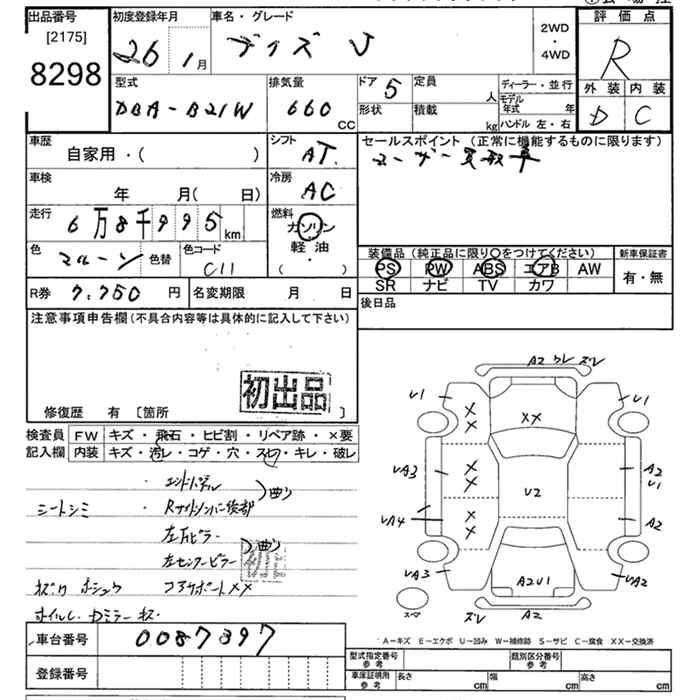 出品番号 初度登録年月 車名・グレード 2WD・4WD 評価点
[2175]
8298 26 1月 デイズ J R
外装 内装
D C
型式 排気量 ドア 定員 ディーラー・並行
DBA-B21W 660 CC 5 人 モデル年式 年
形状 積載 kg ハンドル 左・右
車歴 シフト セールスポイント (正常に機能するものに限ります)
自家用・( ) AT ユーザー買取車
車検 冷房
年 月( 日) AC
走行 燃料
6万8千995km ガソリン
軽・油
( )
色 色替 色コード
マルーン C11
装備品 (純正品に限り〇をつけてください) 新車保証書
PS PW ABS エアB AW 有・無
SR ナビ TV カワ
R券 7.750 円 名変期限 月 日 後日品
注意事項申告欄(不具合内容等は具体的に記入して下さい)
初出品
修復歴 有 [箇所 ]
検査員 FW キズ・飛石・ヒビ割・リペア跡・×要
記入欄 内装 キズ・汚レ・コゲ・穴・スレ・キレ・破レ
エンドパネル 曲リ
シートシミ ・Rサイドメンバー後部
左Fピラー
左センターピラー 曲リ
コアサポートXX
ホイル、Dミラーキズ
A2 ワレ ズレ
U1 U1
XX
X
X
UA3 X A2
X U2 U1
UA4 X A2
X
UA3 A2U1 UA2
ズレ A2
A-キズ E-エクボ U-凹み W-補修跡 S-サビ C-腐食 XX-交換済
車台番号 0087397
型式指定番号 参考 類別区分番号 参考
登録番号 車庫証明用 参考 長さ cm 幅 cm 高さ cm